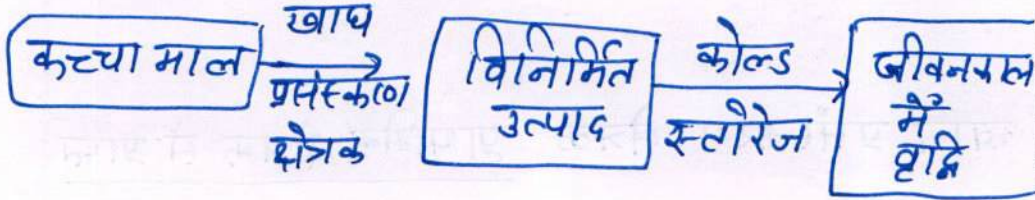 कच्चा माल
खाद्य
प्रसंस्करण
क्षेत्रक
विनिर्मित
उत्पाद
कोल्ड
स्टोरेज
जीवनकाल
में
वृद्धि